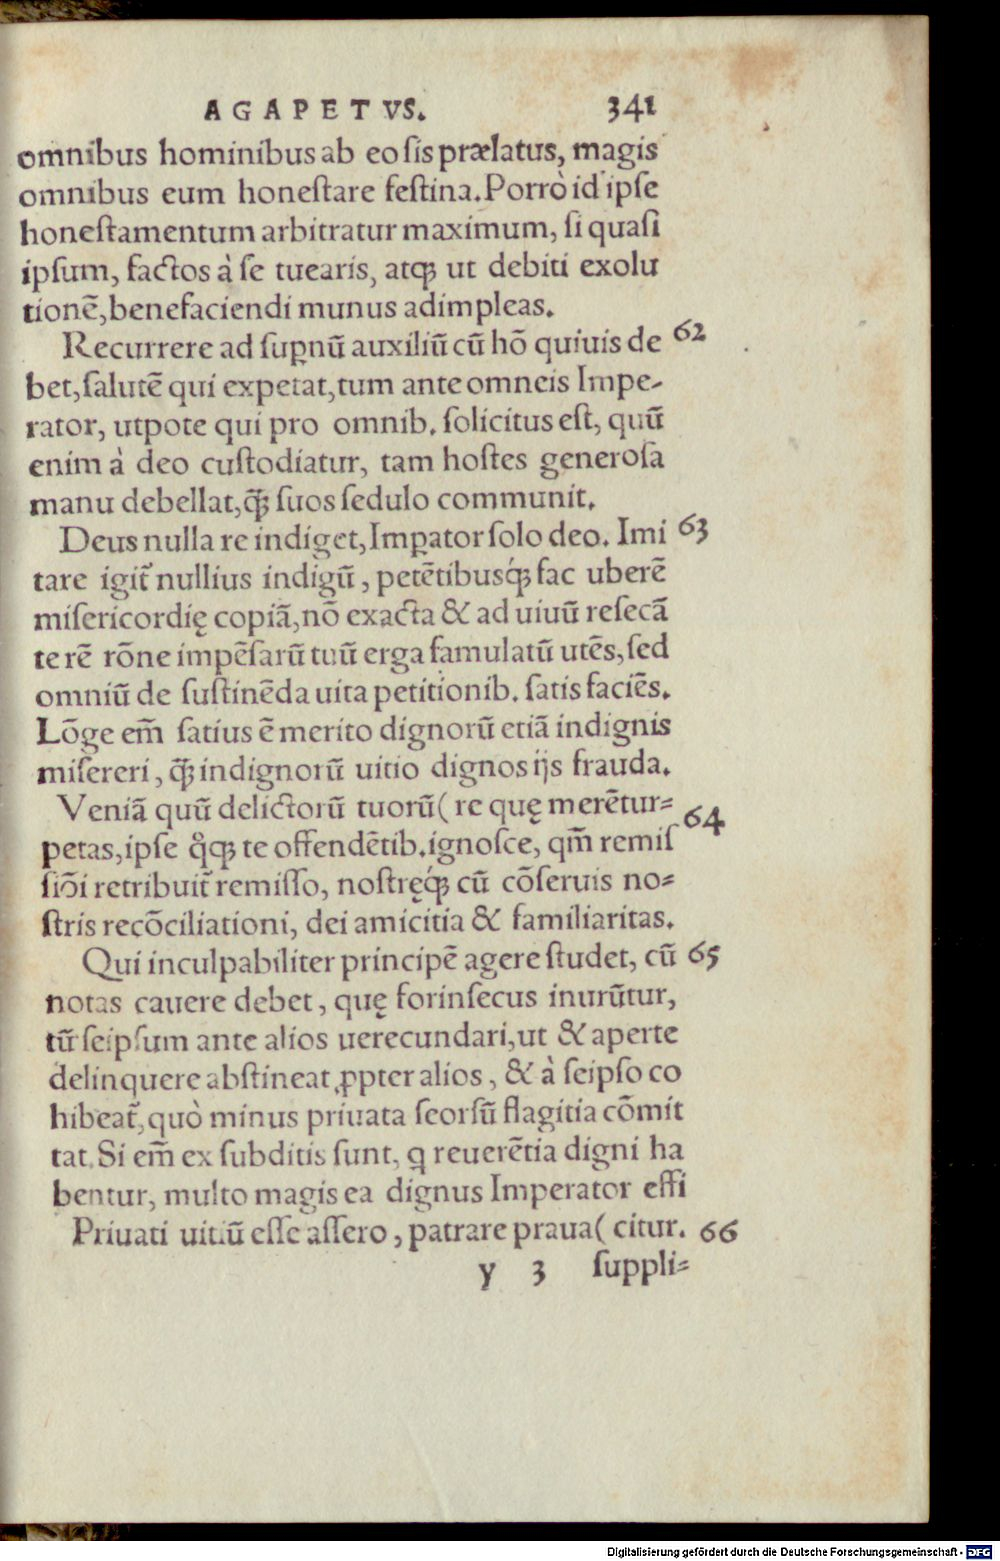 AGAPETVS. 341
omnibus hominibus ab eo ſis prælatus, magis
omnibus eum honeſtare feſtina. Porrò id ipſe
honeſtamentum arbitratur maximum, ſi quaſi
ipſum, factos à ſe tuearis, atqꝫ ut debiti exolu
tionē, benefaciendi munus adimpleas.
Recurrere ad ſuꝑnū auxiliū cū hō quiuis de 62
bet, ſalutē qui expetat, tum ante omneis Impe-
rator, utpote qui pro omnib. ſolicitus eſt, quū
enim à deo cuſtodiatur, tam hoſtes generoſa
manu debellat, q̃ꝫ ſuos ſedulo communit.
Deus nulla re indiget, Imꝑator ſolo deo. Imi 63
tare igit̃ nullius indigū, petētibusq́ꝫ fac uberē
miſericordię copiā, nō exacta & ad uiuū reſecā
te rē rōne impēſarū tuū erga famulatū utēs, ſed
omniū de ſuſtinēda uita petitionib. ſatis faciēs.
Lōge em̄ ſatius ē merito dignorū etiā indignis
miſereri, q̃ꝫ indignorū uitio dignos ijs frauda.
Veniā quū delictorū tuorū (re quę merētur= 64
petas, ipſe q̊qꝫ te offendētib. ignoſce, qm̄ remiſ
ſiōi retribuit̃ remiſſo, noſtręq́ꝫ cū cōſeruis no=
ſtris recōciliationi, dei amicitia & familiaritas.
Qui inculpabiliter principē agere ſtudet, cū 65
notas cauere debet, quę forinſecus inurūtur,
tū ſeipſum ante alios uerecundari, ut & aperte
delinquere abſtineat ꝓpter alios, & à ſeipſo co
hibeat̃, quò minus priuata ſeorſū flagitia cōmit
tat. Si em̄ ex ſubditis ſunt, q reuerētia digni ha
bentur, multo magis ea dignus Imperator effi
Priuati uitiū eſſe aſſero, patrare praua (citur. 66
y 3 ſuppli=
Digitalisierung gefördert durch die Deutsche Forschungsgemeinschaft - DFG